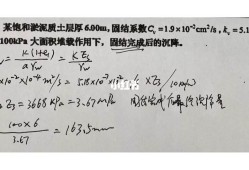 某饱和淤泥质土层厚6.00m，固结系数Cᵥ=1.9×10⁻²cm²/s，kᵥ=5.1
100kPa 大面积堆载作用下，固结完成后的沉降。
= k(1+e₁)/(aγw) = kEs/γw
×10⁻²×10⁻⁴m²/s = 5.18×10⁻⁷×10⁻² ×Es/10
Es=3668 kPa=3.67m 固结完成
小红书
100×6/3.67 = 163.5mm